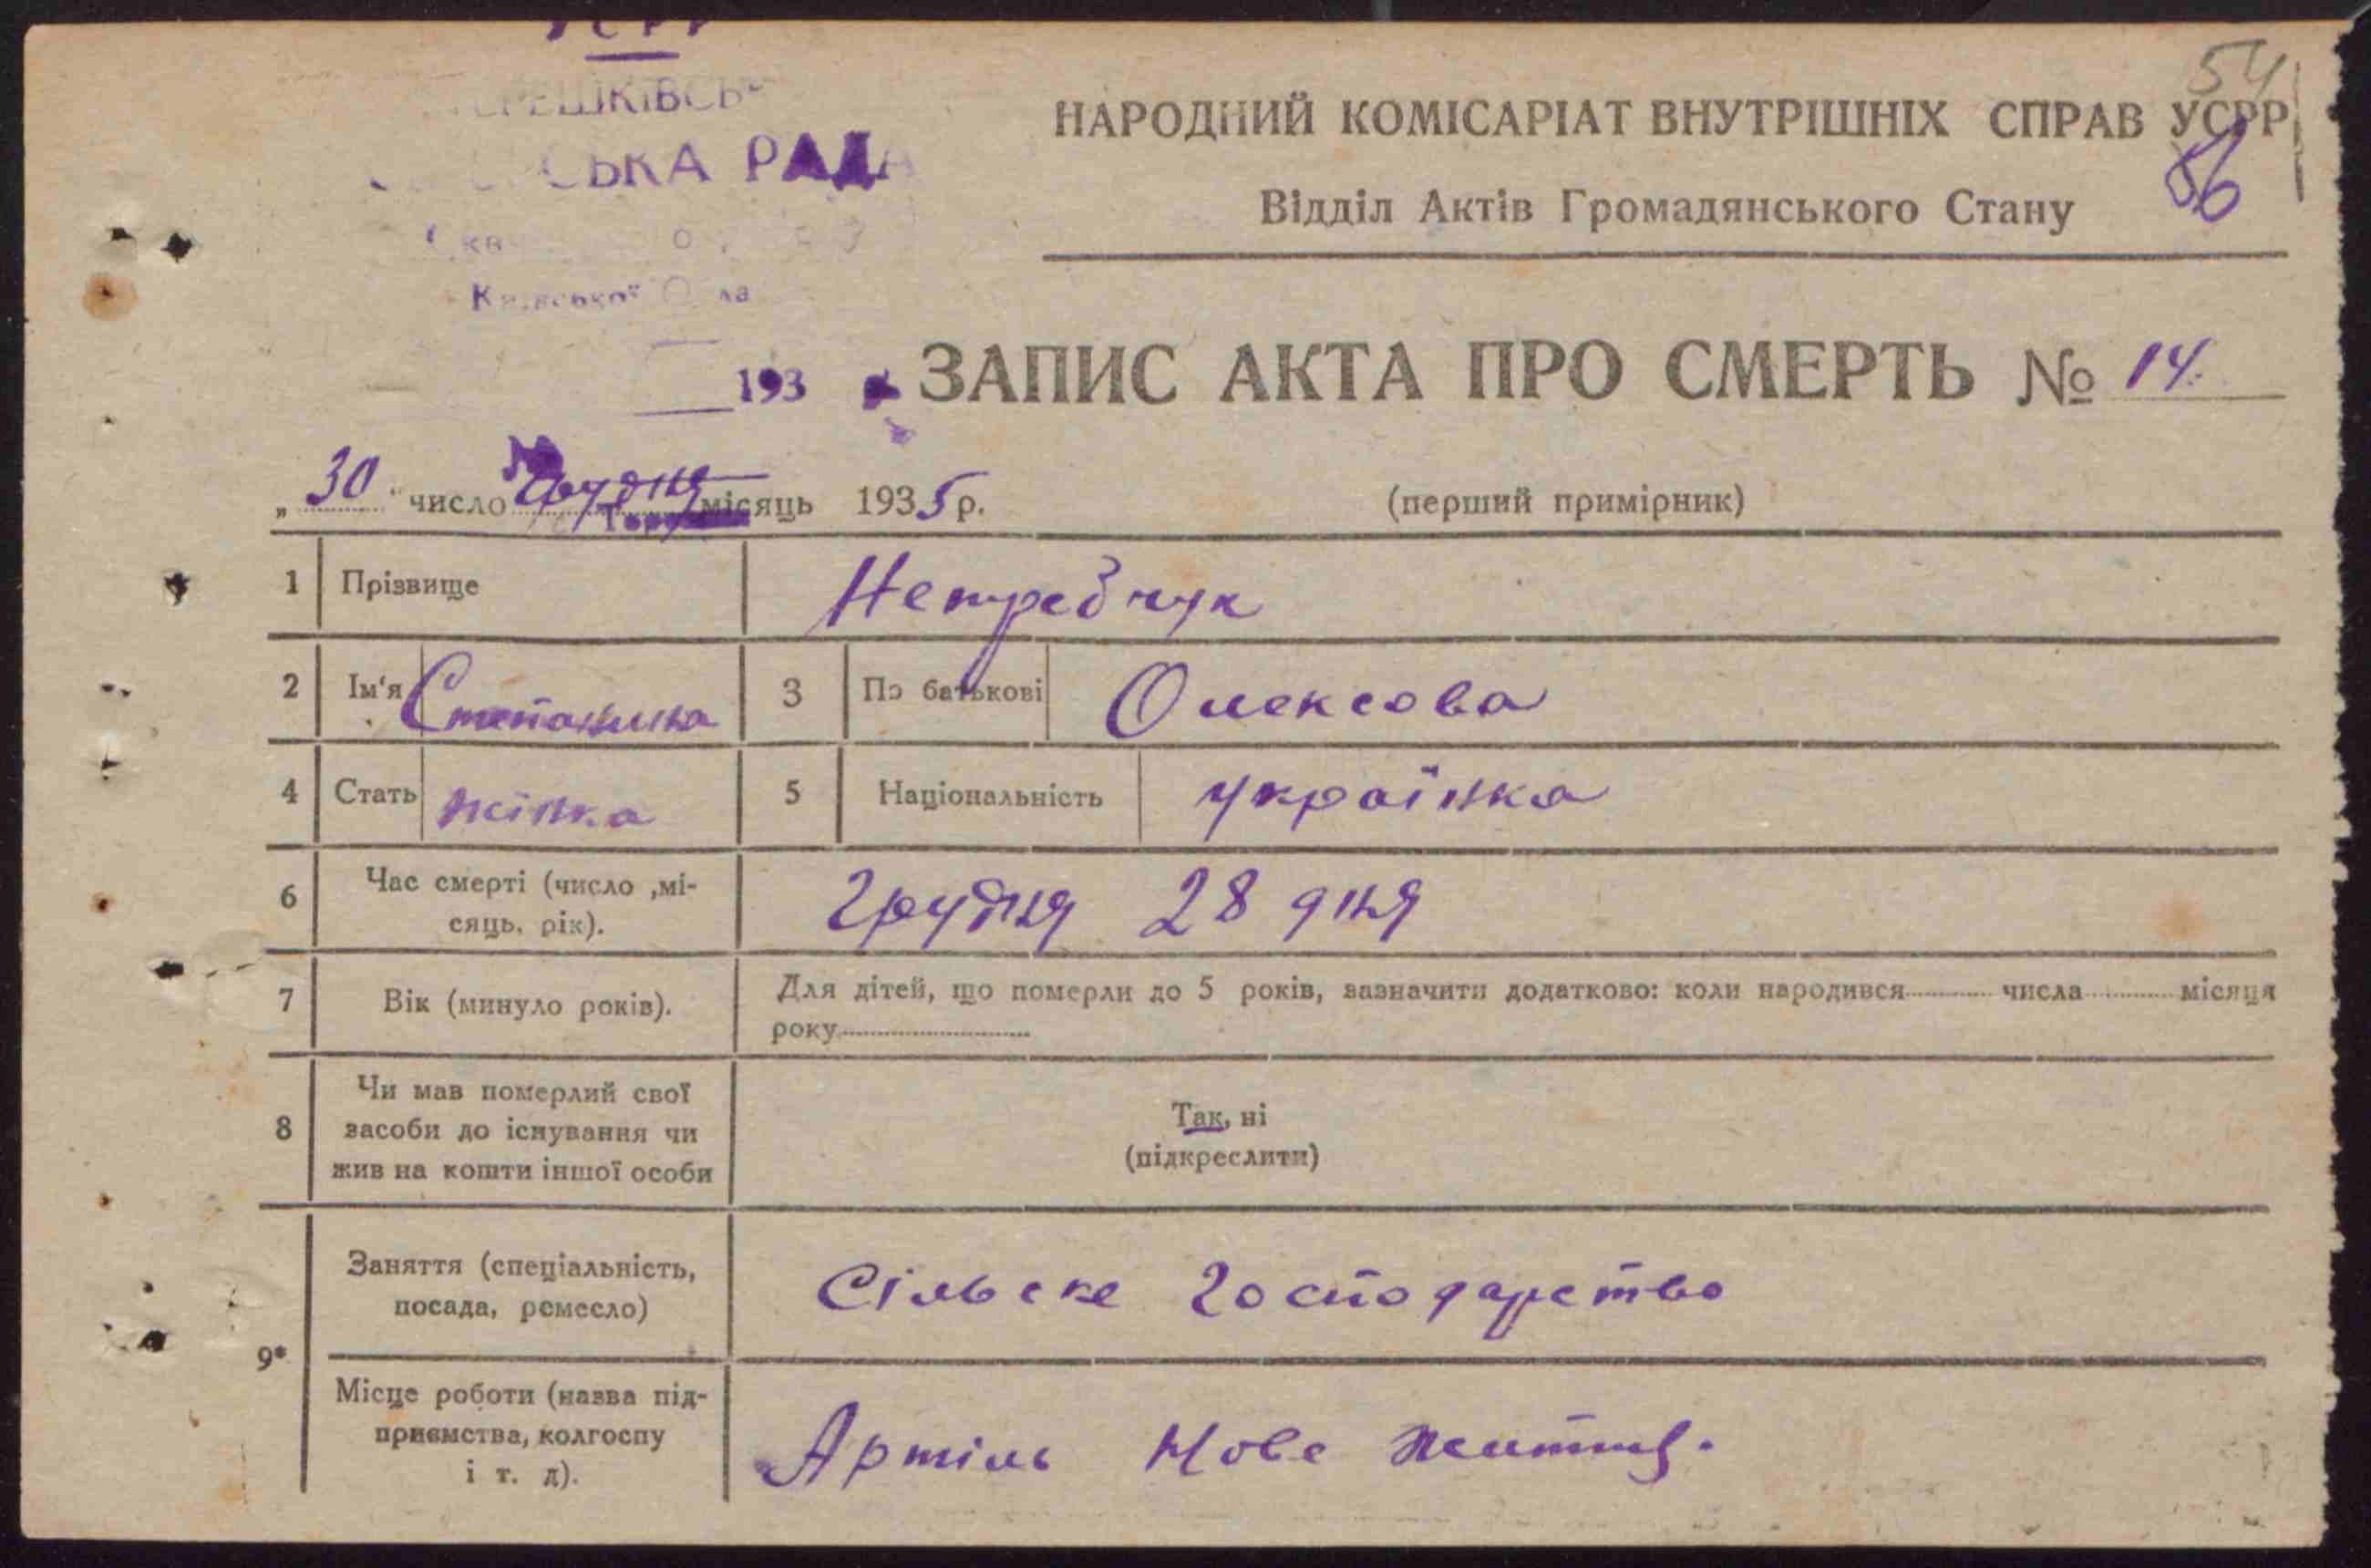 УСРР
СЬКА РАДА
Київської
193
54
НАРОДНИЙ КОМІСАРІАТ ВНУТРІШНІХ СПРАВ УСРР
56
Відділ Актів Громадянського Стану
ЗАПИС АКТА ПРО СМЕРТЬ № 14.
„30" число Грудня місяць 1935 р.
(перший примірник)
1 Прізвище Непредчук
2 Ім'я Степанина 3 По батькові Олексова
4 Стать жінка 5 Національність українка
6 Час смерті (число ,мі-
сяць, рік). Грудня 28 дня
7 Вік (минуло років). Для дітей, що померли до 5 років, зазначити додатково: коли народився числа місяця
року
8 Чи мав померлий свої
засоби до існування чи
жив на кошти іншої особи
Так, ні
(підкреслити)
9*
Заняття (спеціальність,
посада, ремесло) Сільске господарство
Місце роботи (назва під-
приємства, колгоспу
і т. д). Артіль Нове життя.